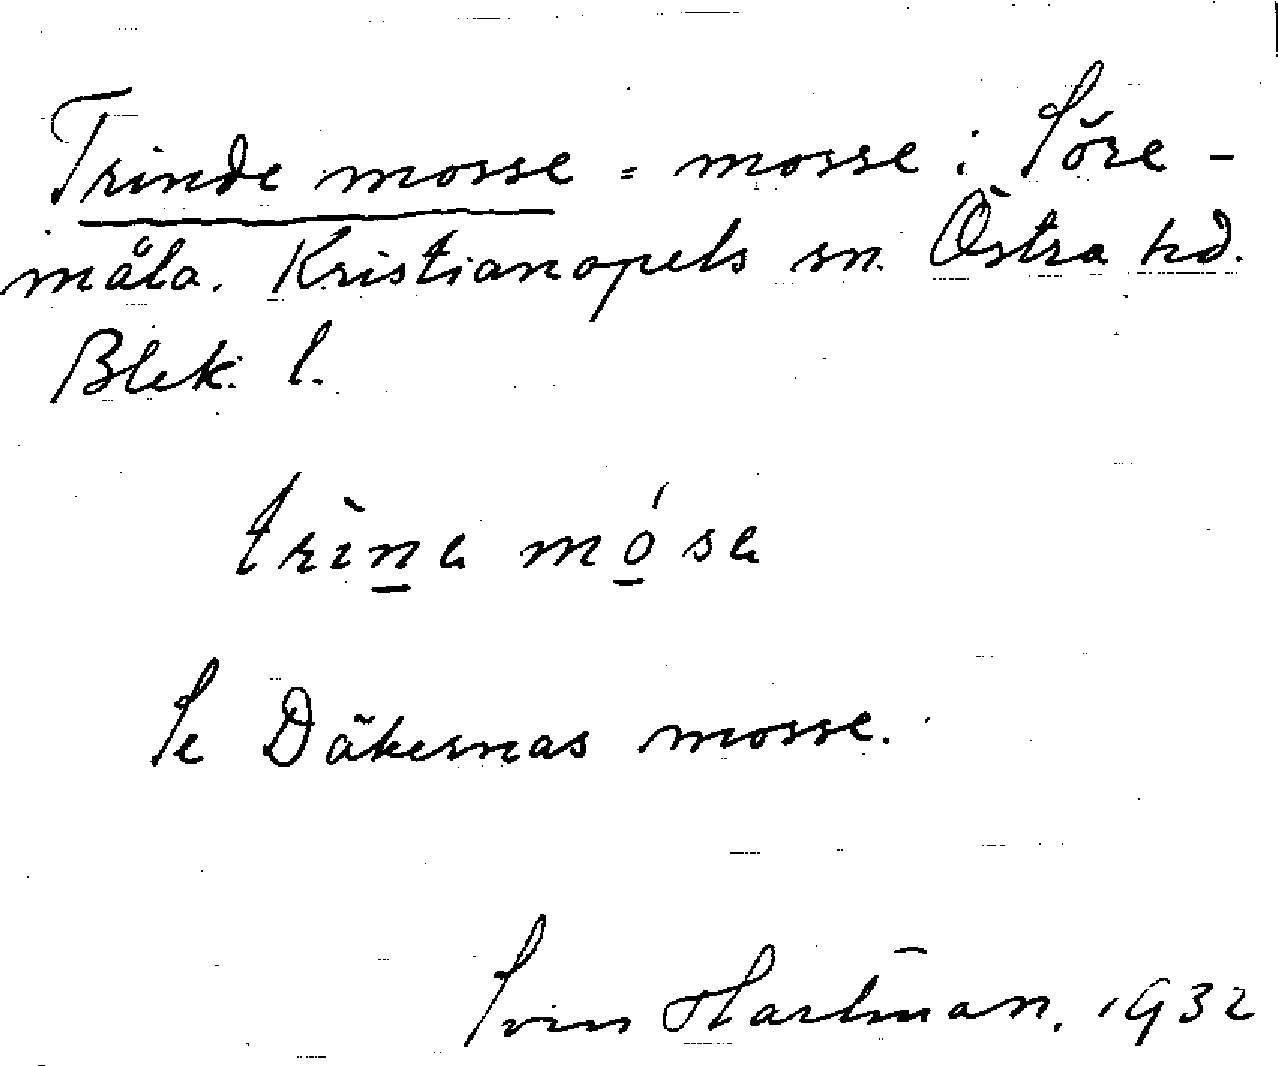 Trinde mosse = mosse i Söre-
måla. Kristianopels sn. Östra hd.
Blek. l.
trìne móse
Se Däkernas mosse.
Sven Hartman, 1932